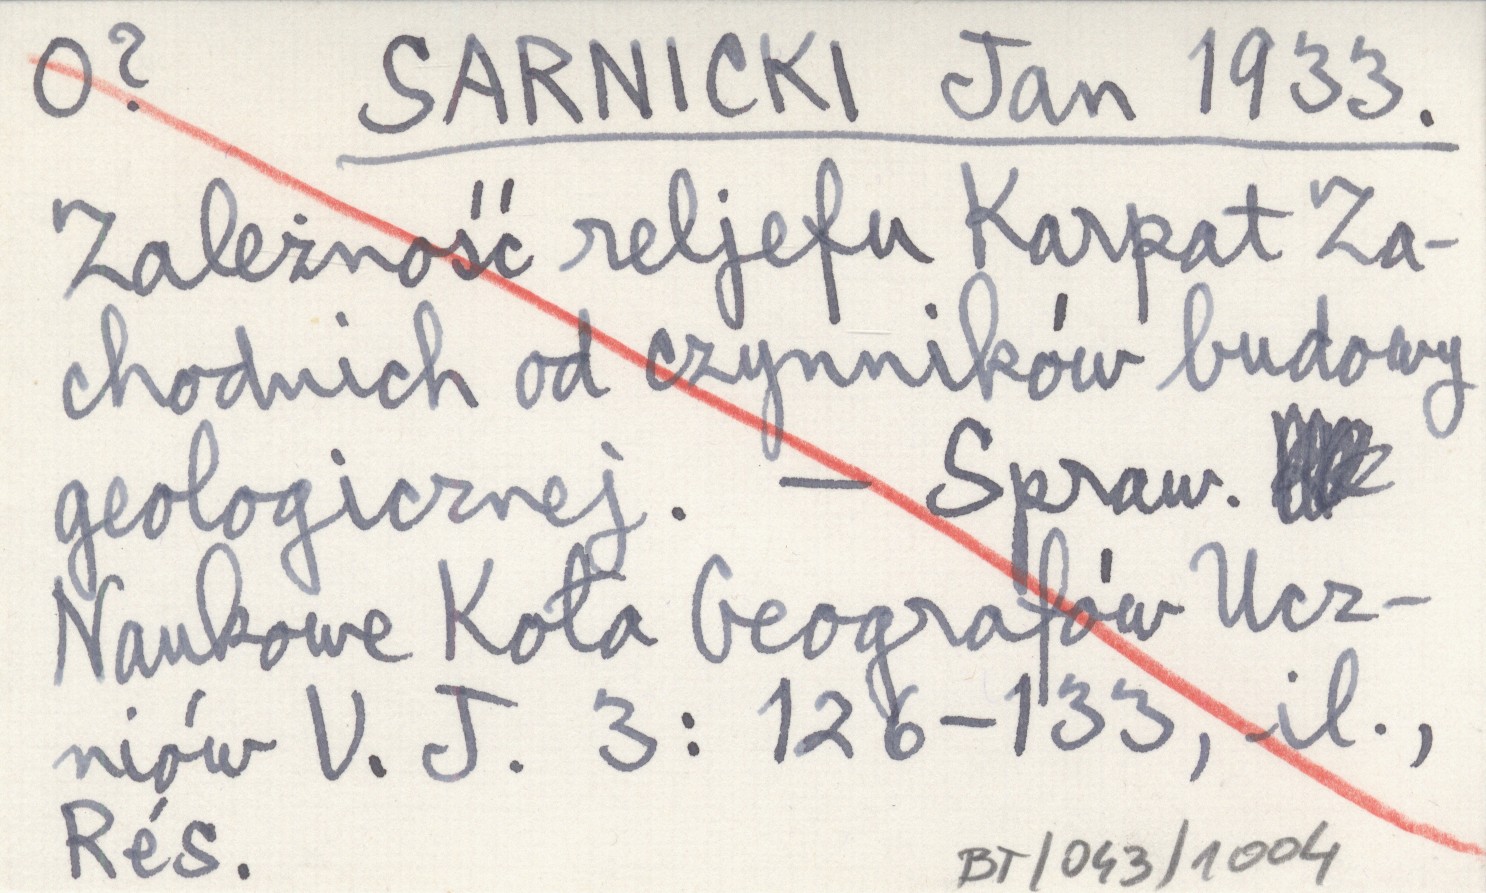 O? SARNICKI Jan 1933.
Zależność reljefu Karpat Za-
chodnich od czynników budowy
geologicznej. — Spraw.
Naukowe Koła Geografów Ucz-
niów U. J. 3: 126-133, il.,
Rés.
BT/043/1004